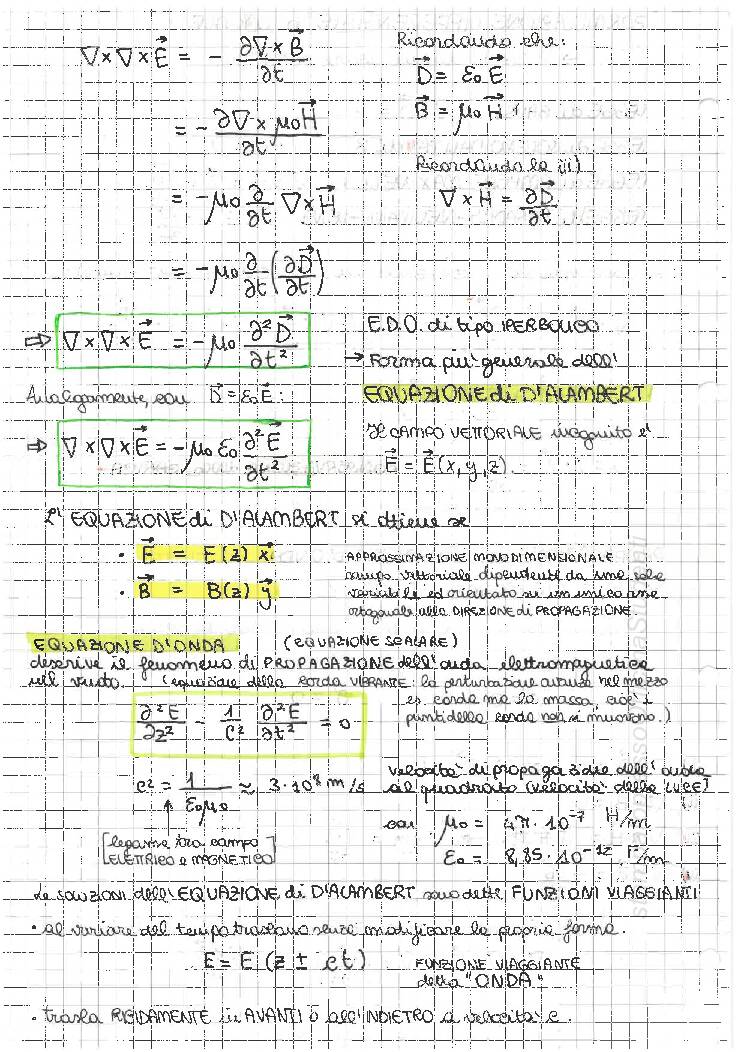 ∇×∇×E⃗ = - ∂∇×B⃗/∂t
Ricordando che:
D⃗ = ε₀E⃗
B⃗ = μ₀H⃗
= - ∂∇×μ₀H⃗/∂t
Ricordando la ii)
= -μ₀ ∂/∂t ∇×H⃗
∇×H⃗ = ∂D⃗/∂t
= -μ₀ ∂/∂t (∂D⃗/∂t)
⇒ ∇×∇×E⃗ = -μ₀ ∂²D⃗/∂t²
E.D.O. di tipo IPERBOLICO
→ Forma piu' generale dell'
EQUAZIONE di D'ALAMBERT
Analogamente, con D⃗ = ε₀E⃗:
⇒ ∇×∇×E⃗ = -μ₀ε₀ ∂²E⃗/∂t²
Il CAMPO VETTORIALE incognito e'
E⃗ = E⃗(x,y,z)
L' EQUAZIONE di D'ALAMBERT si ottiene se
· E⃗ = E(z) x⃗
· B⃗ = B(z) y⃗
APPROSSIMAZIONE MONODIMENSIONALE
campo vettoriale dipendente da una sola
variabile ed orientato su un unico asse
ortogonale alla DIREZIONE di PROPAGAZIONE
EQUAZIONE D'ONDA (EQUAZIONE SCALARE)
descrive il fenomeno di PROPAGAZIONE dell'onda elettromagnetica
nel vuoto. (equazione della corda VIBRANTE: la perturbazione avanza nel mezzo
es corda ma la massa, cioè i
punti della corda non si muovono.)
∂²E/∂z² - 1/c² ∂²E/∂t² = 0
c² = 1/ε₀μ₀ ≈ 3·10⁸ m/s
velocita' di propagazione dell'onda
al quadrato (velocita' della LUCE)
con μ₀ = 4π·10⁻⁷ H/m
ε₀ = 8,85·10⁻¹² F/m
[legame tra campo
ELETTRICO e MAGNETICO]
Le soluzioni dell'EQUAZIONE di D'ALAMBERT sono dette FUNZIONI VIAGGIANTI
· al variare del tempo traslano senza modificare la propria forma.
E = E (z ± ct)
FUNZIONE VIAGGIANTE
detta "ONDA"
· trasla RIGIDAMENTE in AVANTI o all'INDIETRO a velocita' c.